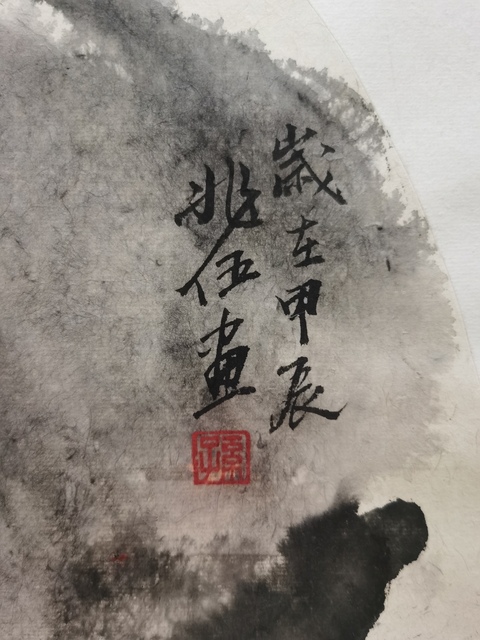 歲在甲辰
兆伍畫